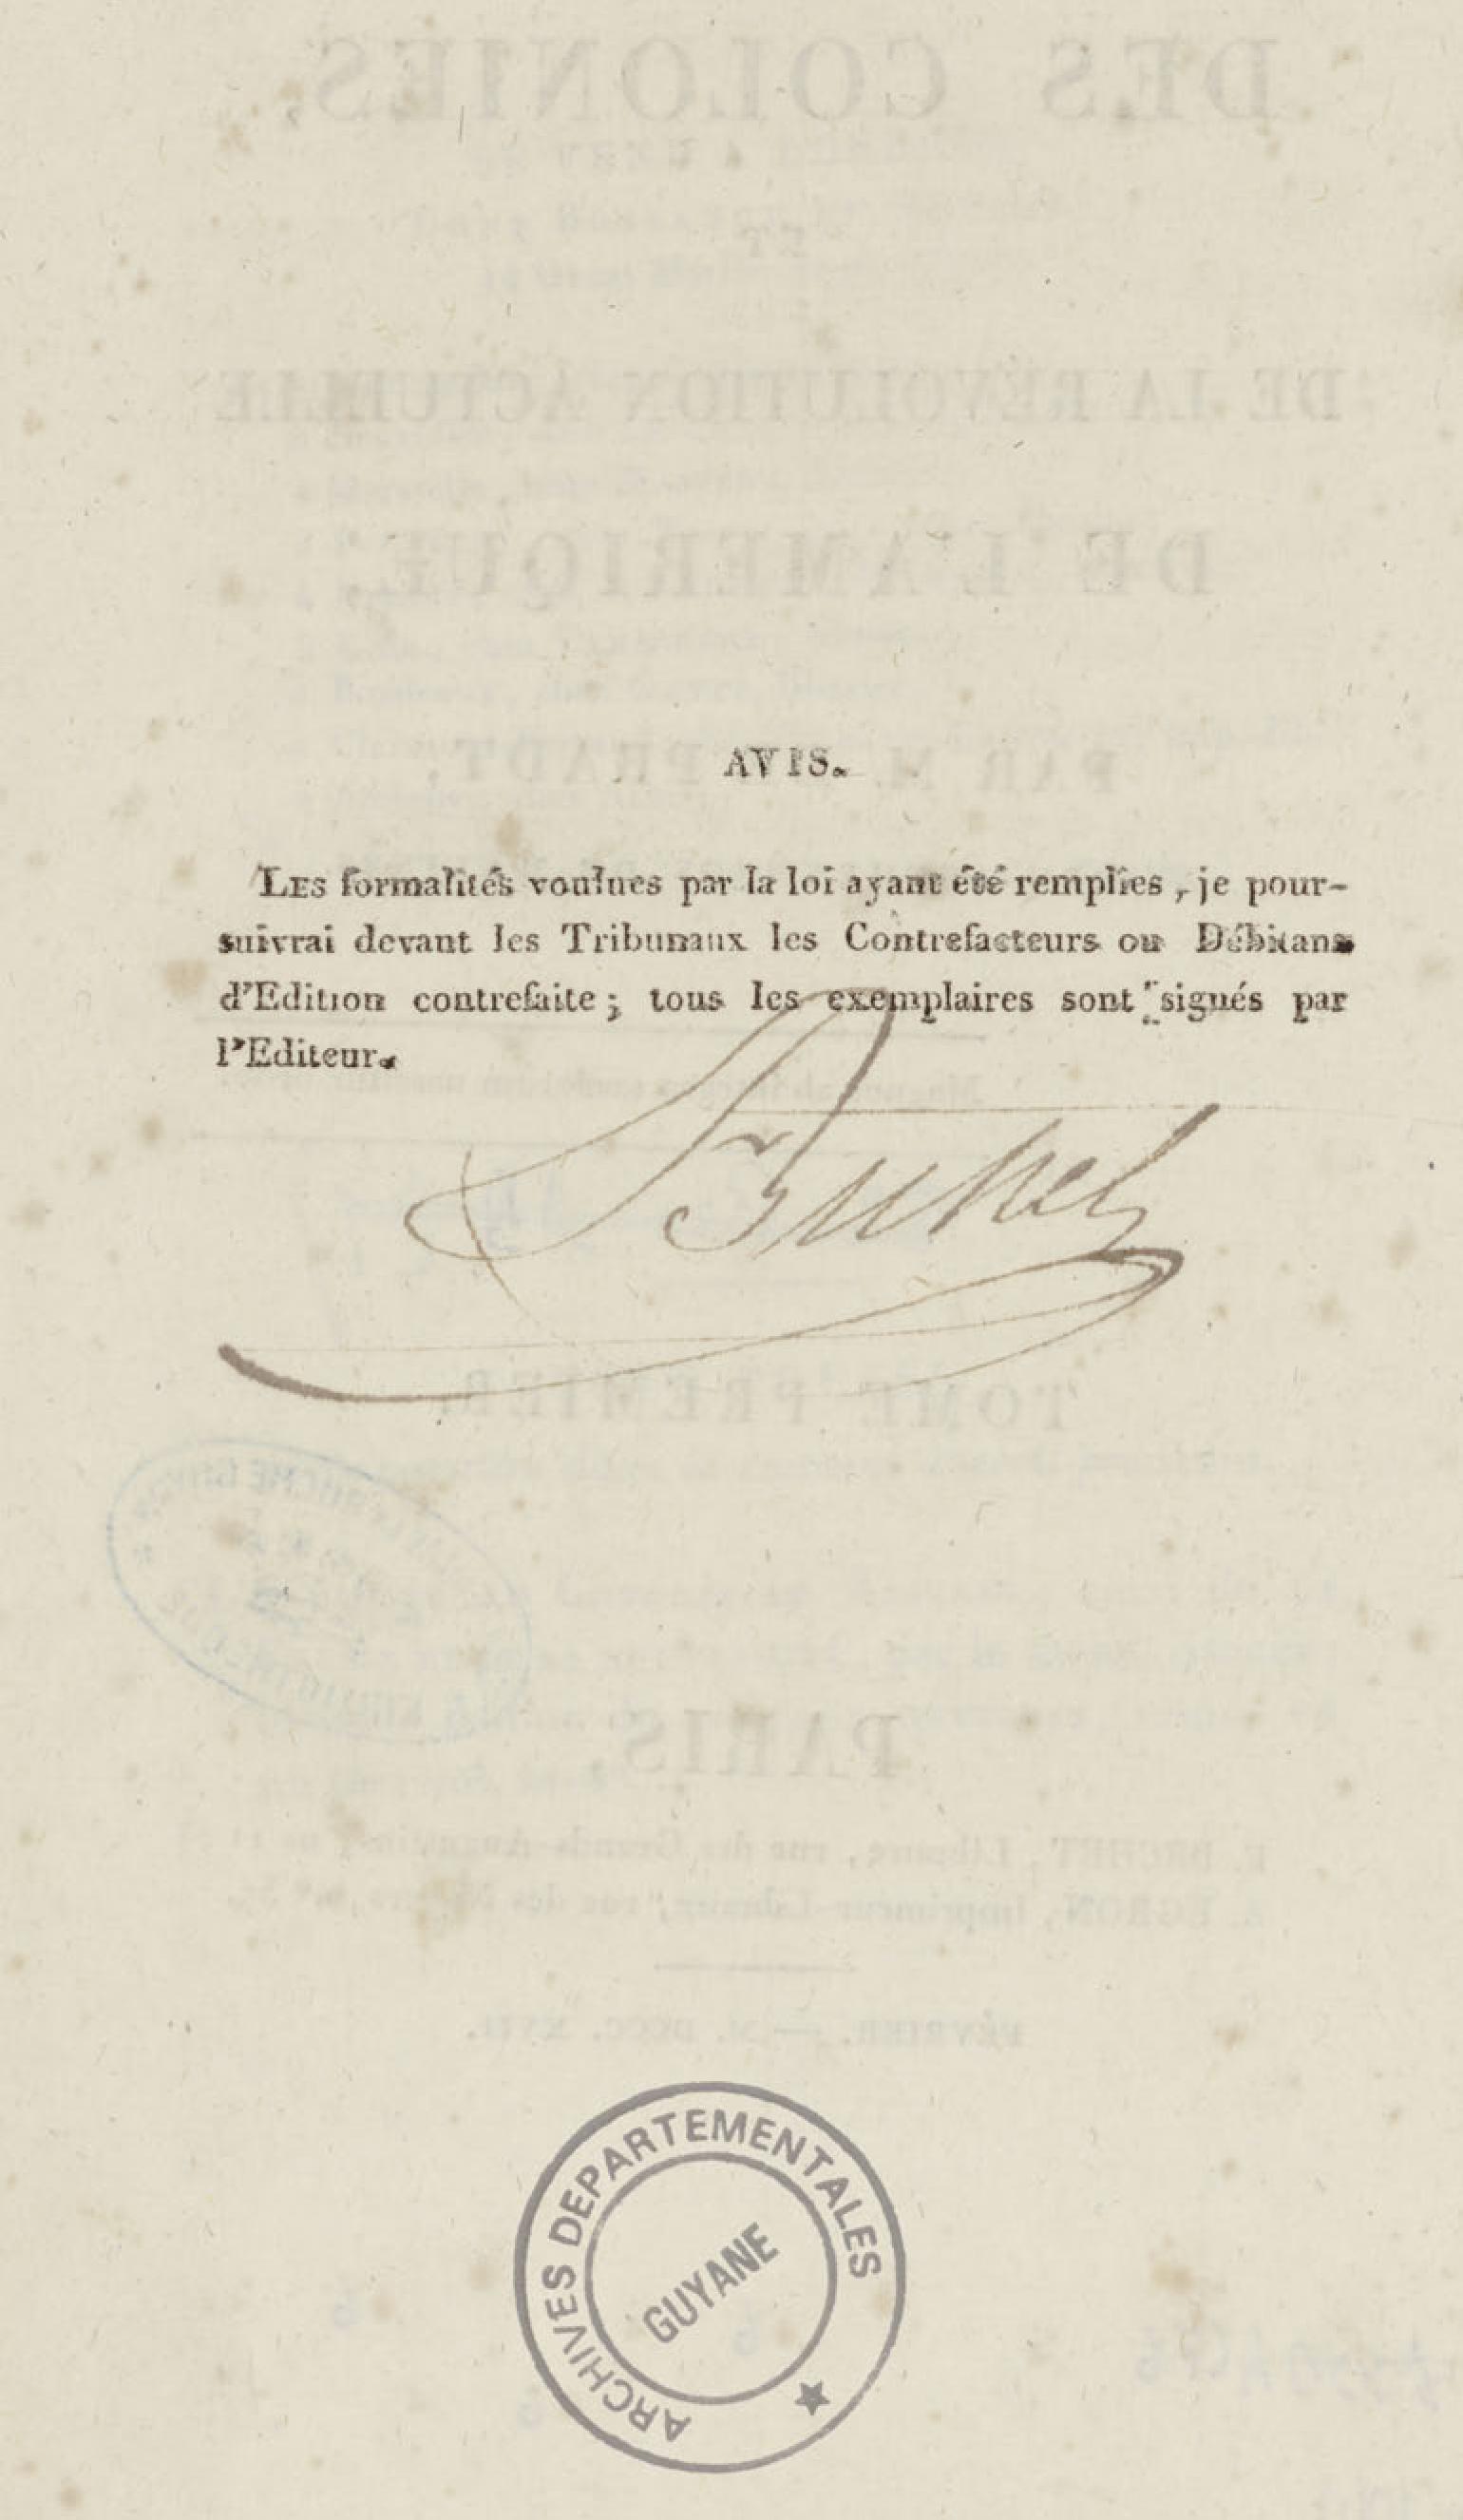 AVIS.
LES formalités voulues par la loi ayant été remplies, je pour-
suivrai devant les Tribunaux les Contrefacteurs ou Débitans
d'Edition contrefaite; tous les exemplaires sont signés par
l'Editeur.
Bechet
ARCHIVES DEPARTEMENTALES
GUYANE